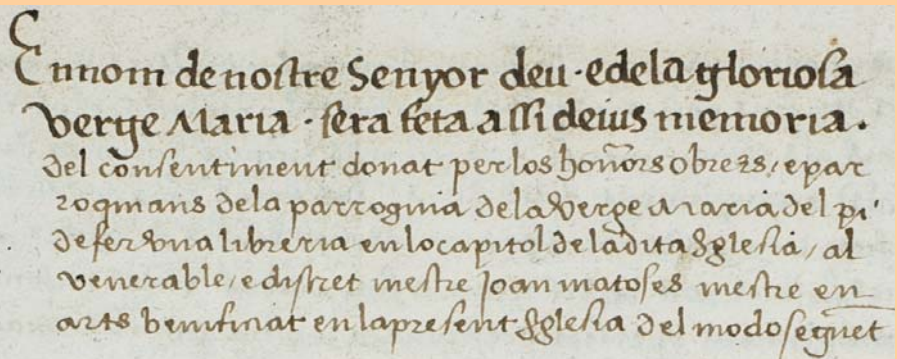 En nom de nostre Senyor deu · e dela gloriosa
verge Maria · sera feta assi deius memoria .
del consentiment donat per los honors obrers / e par
roquians dela parroquia dela verge Maria del pi
de fer vna libreria en lo capitol de la dita Esglesia / al
venerable / e discret mestre Joan matoses mestre en
arts benificiat en la present Esglesia del modo seguet